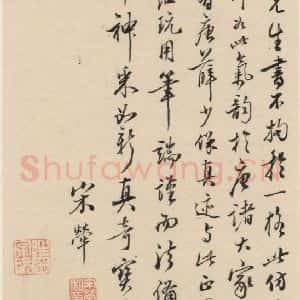 先生書不拘於一格此仿
此氣韻於唐諸大家
唐薛少保真迹与此正
玩用筆端謹而法備
神采如新真奇寶
宋犖
Shufawang.cn